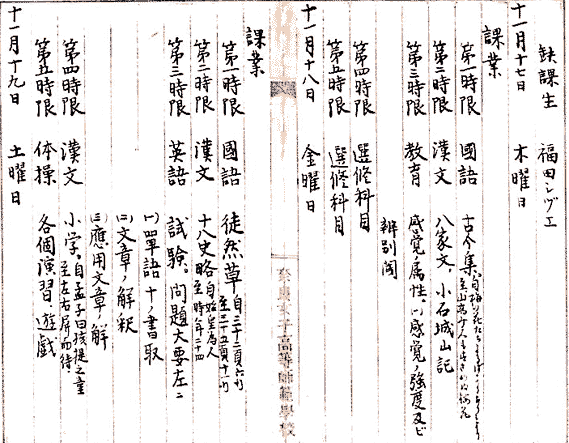 缺課生 福田シヅエ
十一月十七日 木曜日
課業
第一時限 國語 古今集、自梅
第二時限 漢文 八家文、小石城山記
第三時限 教育 感覚ノ属性、(一)感覚ノ強度及ビ
辨別閾
第四時限 選修科目
第五時限 選修科目
十一月十八日 金曜日
課業
第一時限 國語 徒然草
第二時限 漢文 十八史略 自始皇為人 至時年二十四
第三時限 英語 試験。問題大要左ニ
(一)單語十ノ書取
(二)文章ノ解釈
(三)應用文章ノ解
第四時限 漢文 小学。自孟子曰孩提之童 至左右屏而待、
第五時限 体操 各個演習、遊戯
十一月十九日 土曜日
奈良女子高等師範學校